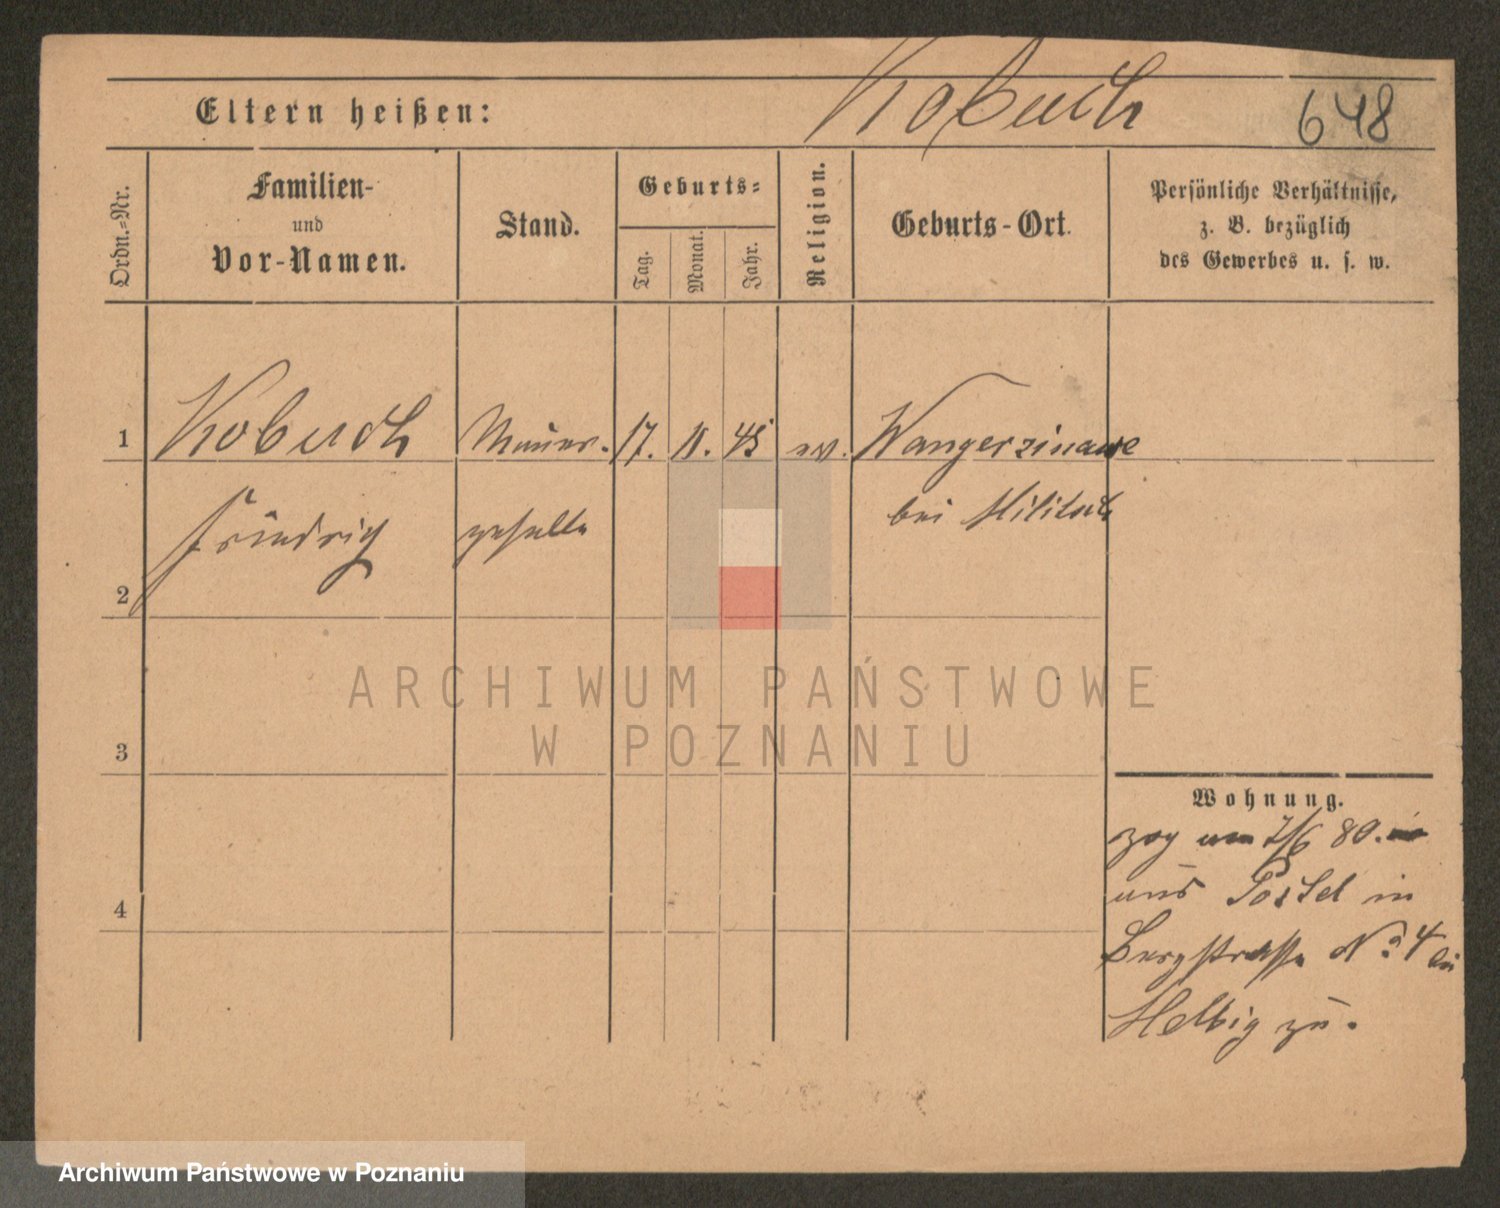 Kobusch
648
Eltern heißen:
Ordn.-Nr.
Familien-
und
Vor-Namen.
Stand.
Geburts-
Tag.
Monat.
Jahr.
Religion.
Geburts-Ort.
Persönliche Verhältnisse,
z. B. bezüglich
des Gewerbes u. s. w.
1 Maurer- 17. 45 ev.
Friedrich geselle bei Militsch
2
3
4
Wohnung.
zog am 7/6 80.
aus in
Bergstrasse No 4 bei
Helbig zu.
ARCHIWUM PAŃSTWOWE
W POZNANIU
Archiwum Państwowe w Poznaniu